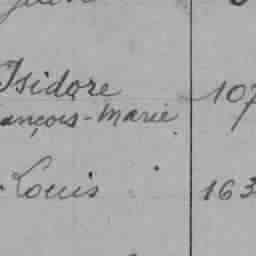 Isidore 107
ançois-Marie
Louis 163